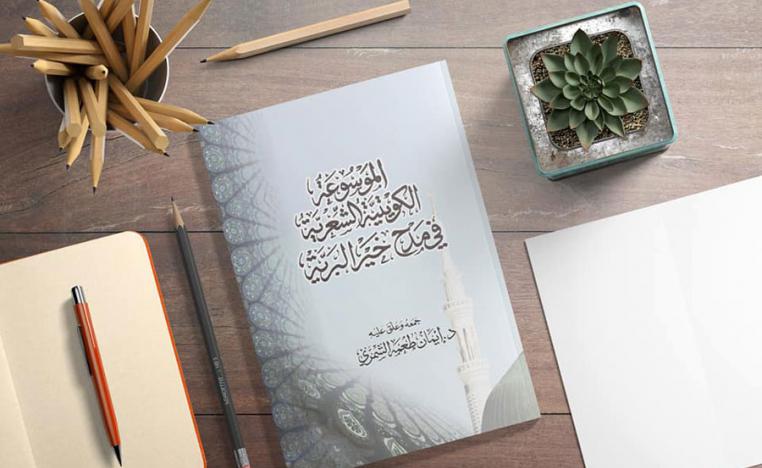 الموسوعة
الكويتية الشعرية
في مدح خير البرية
جمعه وعلق عليه
د. إيمان طعمة الشمري